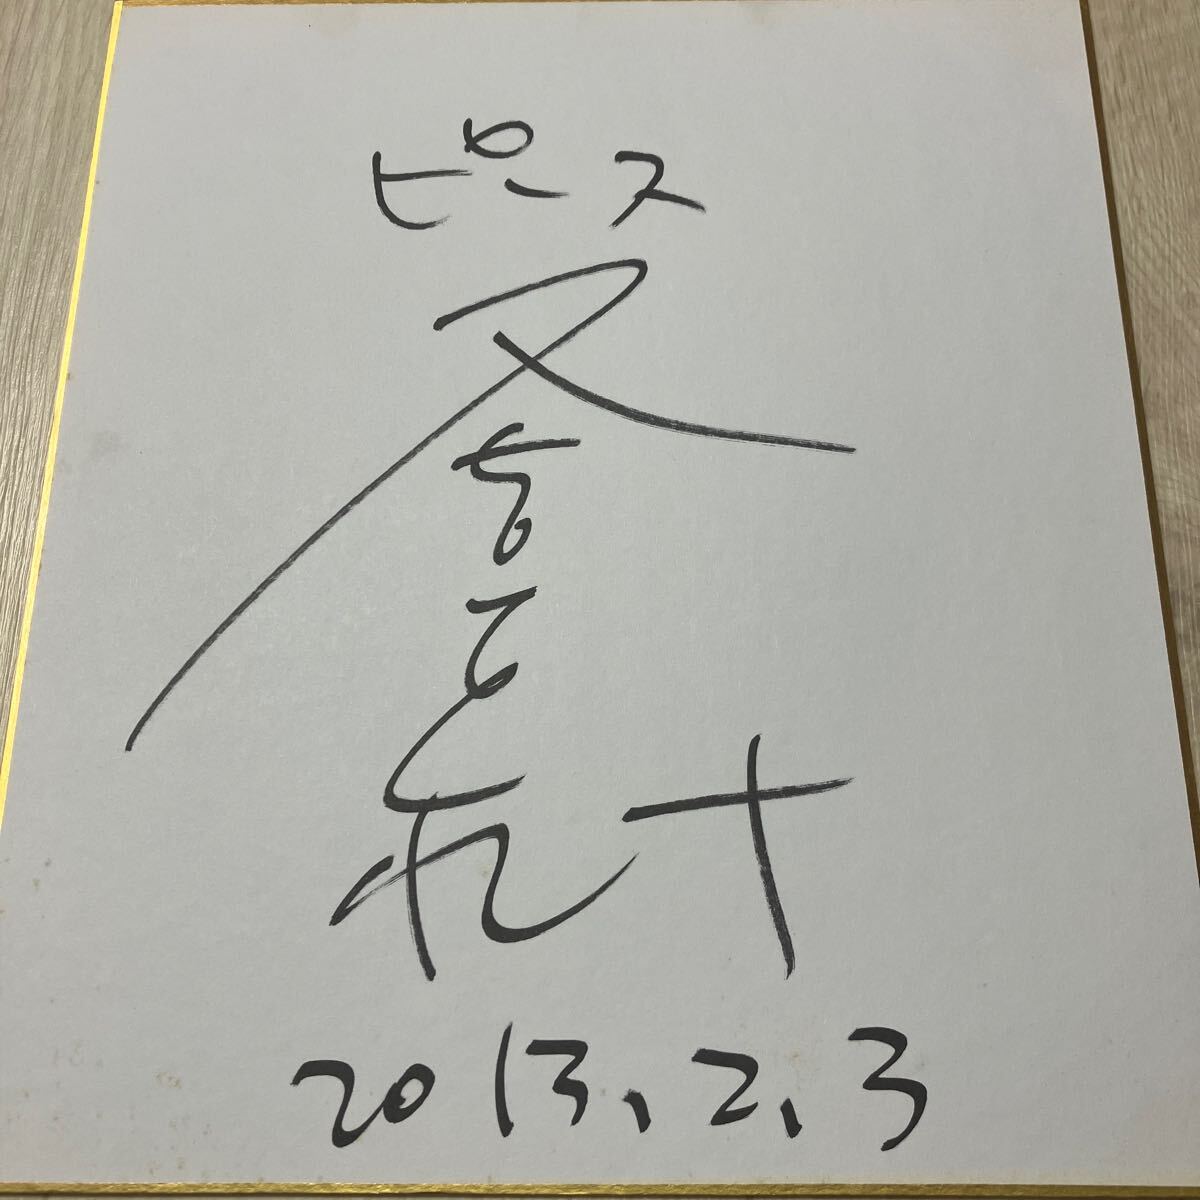 ピース
又吉直樹
2013.2.3